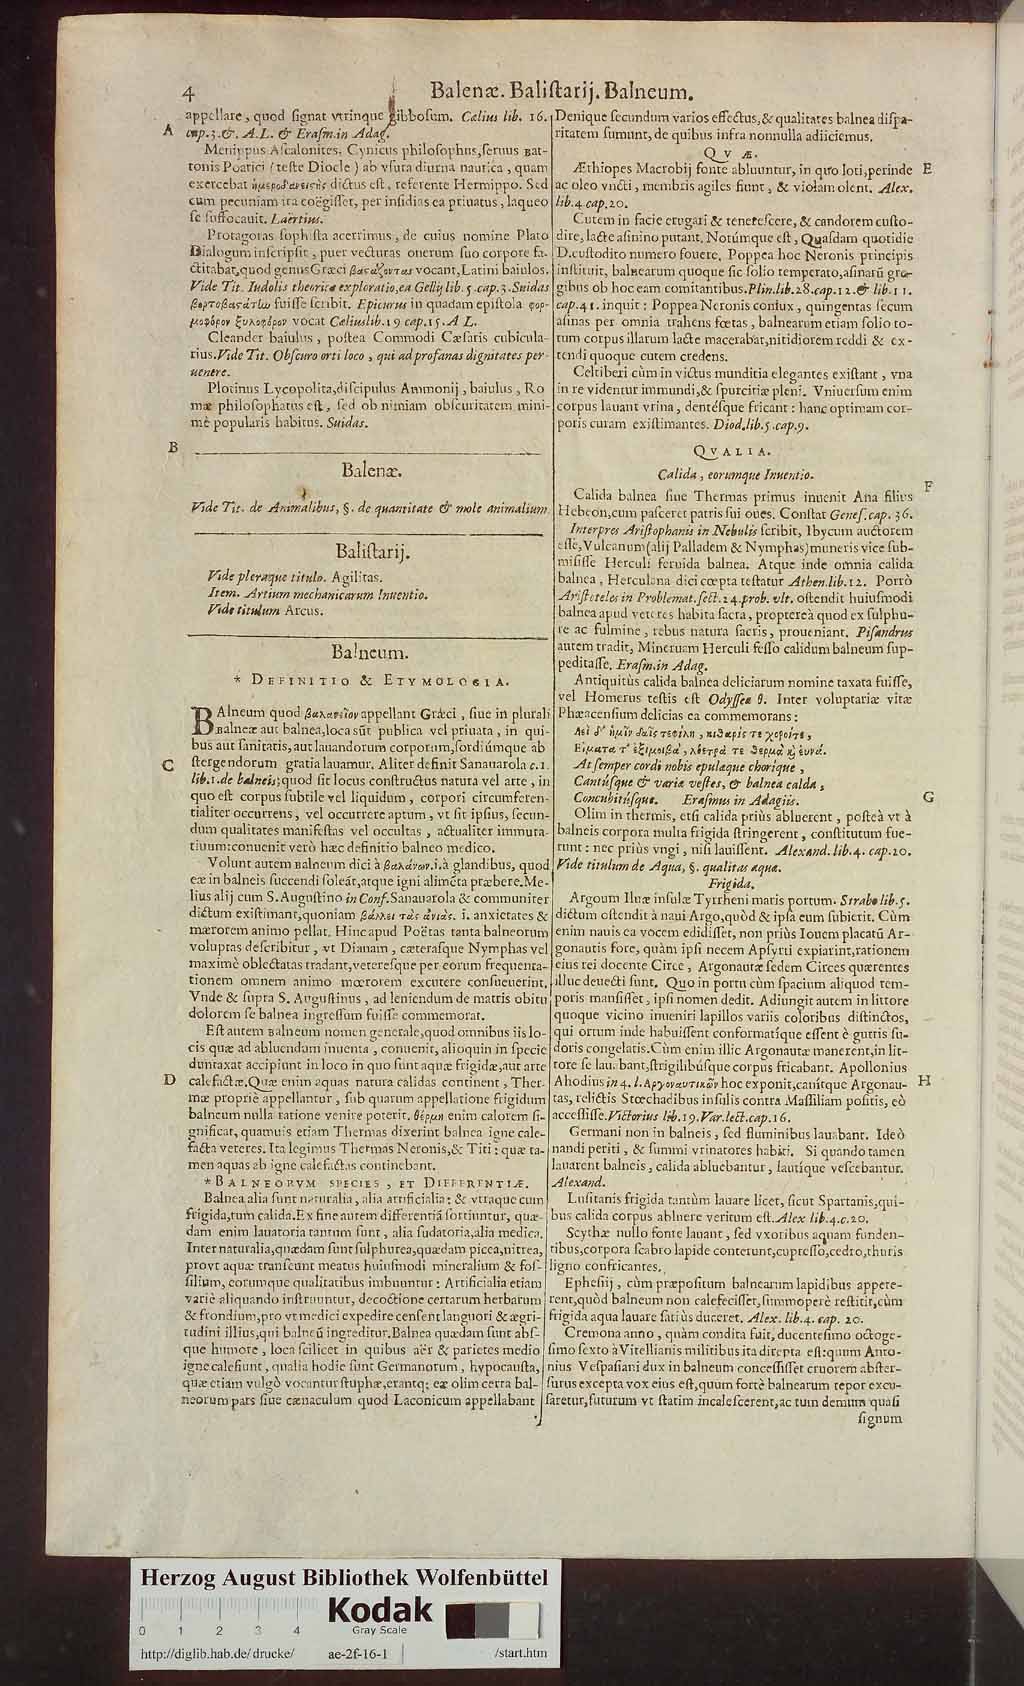 4
Balenæ. Baliſtarij. Balneum.
appellare, quod ſignat vtrinque gibboſum. Cælius lib. 16.
A
cap. 3. &. A. L. & Eraſm. in Adag.
Menippus Aſcalonites, Cynicus philoſophus, ſeruus Bat-
tonis Poatici (teſte Diocle) ab vſura diurna nautica, quam
exercebat ἡμεροδανειστὴς dictus eſt, referente Hermippo. Sed
cum pecuniam ita coëgiſſet, per inſidias ea priuatus, laqueo
ſe ſuffocauit. Laërtius.
Protagoras ſophiſta acerrimus, de cuius nomine Plato
Dialogum inſcripſit, puer vecturas onerum ſuo corpore fa-
ctitabat, quod genus Græci βαϛάζοντας vocant, Latini baiulos.
Vide Tit. Indolis theoricæ exploratio, ea Gellij lib. 5. cap. 3. Suidas
φορτοβαϛάκτω fuiſſe ſcribit. Epicurus in quadam epiſtola φορ-
μοφόρον ξυλοφόρον vocat Cælius lib. 19 cap. 15. A L.
Cleander baiulus, poſtea Commodi Cæſaris cubicula-
rius. Vide Tit. Obſcuro orti loco, qui ad profanas dignitates per-
uenere.
Plotinus Lycopolita, diſcipulus Ammonij, baiulus, Ro
mæ philoſophatus eſt, ſed ob nimiam obſcuritatem mini-
mè popularis habitus. Suidas.
B
Balenæ.
Vide Tit. de Animalibus, §. de quantitate & mole animalium
Baliſtarij.
Vide pleraque titulo. Agilitas.
Item. Artium mechanicarum Inuentio.
Vide titulum Arcus.
Balneum.
* DEFINITIO & ETYMOLOGIA.
BAlneum quod βαλανεῖον appellant Græci, ſiue in plurali
Balneæ aut balnea, loca sūt publica vel priuata, in qui-
bus aut ſanitatis, aut lauandorum corporum, ſordiúmque ab
C
ſtergendorum gratia lauamur. Aliter definit Sanauarola c. 1.
lib. 1. de balneis; quod ſit locus conſtructus natura vel arte, in
quo eſt corpus ſubtile vel liquidum, corpori circumferen-
tialiter occurrens, vel occurrere aptum, vt ſit ipſius, ſecun-
dum qualitates manifeſtas vel occultas, actualiter immuta-
tiuum: conuenit verò hæc definitio balneo medico.
Volunt autem Balneum dici à βαλάνων. i. à glandibus, quod
eæ in balneis ſuccendi ſoleāt, atque igni alimēta præbere. Me-
lius alij cum S. Auguſtino in Conf. Sanauarola & communiter
dictum exiſtimant, quoniam βάλλει τὰς ἀνίας. i. anxietates &
mærorem animo pellat. Hinc apud Poëtas tanta balneorum
voluptas deſcribitur, vt Dianam, cæteraſque Nymphas vel
maximè oblectatas tradant, vetereſque per eorum frequenta-
tionem omnem animo mœrorem excutere conſueuerint.
Vnde & ſupra S. Auguſtinus, ad leniendum de matris obitu
dolorem ſe balnea ingreſſum fuiſſe commemorat.
Eſt autem Balneum nomen generale, quod omnibus iis lo-
cis quæ ad abluendum inuenta, conuenit, alioquin in ſpecie
duntaxat accipiunt in loco in quo ſunt aquæ frigidæ, aut arte
D
calefactæ. Quæ enim aquas natura calidas continent, Ther-
mæ propriè appellantur, ſub quarum appellatione frigidum
balneum nulla ratione venire poterit. θέρμη enim calorem ſi-
gnificat, quamuis etiam Thermas dixerint balnea igne cale-
facta veteres. Ita legimus Thermas Neronis, & Titi: quæ ta-
men aquas ab igne calefactas continebant.
* BALNEORVM SPECIES, ET DIFFERENTIÆ.
Balnea alia ſunt naturalia, alia artificialia: & vtraque cum
frigida, tum calida. Ex fine autem differentiā ſortiuntur, quæ-
dam enim lauatoria tantum ſunt, alia ſudatoria, alia medica.
Inter naturalia, quædam ſunt ſulphurea, quædam picea, nitrea,
prout aquæ tranſeunt meatus huiuſmodi mineralium & foſ-
ſilium, eorumque qualitatibus imbuuntur: Artificialia etiam
variè aliquando inſtruuntur, decoctione certarum herbarum
& frondium, pro vt medici expedire cenſent languori & ægri-
tudini illius, qui balneū ingreditur. Balnea quædam ſunt abſ-
que humore, loca ſcilicet in quibus aër & parietes medio
igne caleſiunt, qualia hodie ſunt Germanorum, hypocauſta,
quæ etiam vulgò vocantur ſtuphæ, erantq; eæ olim certa bal-
neorum pars ſiue cænaculum quod Laconicum appellabant
Denique ſecundum varios effectus, & qualitates balnea diſpa-
ritatem ſumunt, de quibus infra nonnulla adiiciemus.
QVÆ.
Æthiopes Macrobij fonte abluuntur, in quo loti, perinde
E
ac oleo vncti, membris agiles fiunt, & violam olent. Alex.
lib. 4 cap. 20.
Cutem in facie erugari & teneteſcere, & candorem cuſto-
dire, lacte aſinino putant. Notúmque eſt, Quaſdam quotidie
D. cuſtodito numero fouere. Poppea hoc Neronis principis
inſtituit, balnearum quoque ſic ſolio temperato, aſinarū gre-
gibus ob hoc eam comitantibus. Plin. lib. 28. cap. 12. & lib. 11.
cap. 41. inquit: Poppea Neronis coniux, quingentas ſecum
aſinas per omnia trahens fœtas, balnearum etiam ſolio to-
tum corpus illarum lacte macerabat, nitidiorem reddi & ex-
tendi quoque cutem credens.
Celtiberi cùm in victus munditia elegantes exiſtant, vna
in re videntur immundi, & ſpurcitiæ pleni. Vniuerſum enim
corpus lauant vrina, dentéſque fricant: hanc optimam cor-
poris curam exiſtimantes. Diod. lib. 5. cap. 9.
QVALIA.
Calida, eorumque Inuentio.
F
Calida balnea ſiue Thermas primus inuenit Ana filius
Hebeon, cum paſceret patris ſui oues. Conſtat Geneſ. cap. 36.
Interpres Ariſtophanis in Nebulis ſcribit, Ibycum auctorem
eſſe, Vulcanum (alij Palladem & Nymphas) muneris vice ſub-
miſiſſe Herculi feruida balnea. Atque inde omnia calida
balnea, Herculana dici cœpta teſtatur Athen. lib. 12. Porrò
Ariſtoteles in Problemat. ſect. 24. prob. vlt. oſtendit huiuſmodi
balnea apud veteres habita ſacra, proptereà quod ex ſulphu-
re ac fulmine, rebus natura ſacris, proueniant. Piſandrus
autem tradit, Mineruam Herculi feſſo calidum balneum ſup-
peditaſſe. Eraſm. in Adag.
Antiquitùs calida balnea deliciarum nomine taxata fuiſſe,
vel Homerus teſtis eſt Odyſſea θ. Inter voluptariæ vitæ
Phæacenſium delicias ea commemorans:
Αεὶ δ' ἡμῖν δαίς τε φίλη, κίθαρίς τε χοροί τε,
Εἵματα τ' ἐξημοιβὰ, λοετρά τε θερμὰ καὶ ἐυναί.
At ſemper cordi nobis epulæque chorique,
Cantúſque & variæ veſtes, & balnea calda,
Concubitúſque. Eraſmus in Adagiis.
G
Olim in thermis, etſi calida priùs abluerent, poſteà vt à
balneis corpora multa frigida ſtringerent, conſtitutum fue-
runt: nec priùs vngi, niſi lauiſſent. Alexand. lib. 4. cap. 20.
Vide titulum de Aqua, §. qualitas aquæ.
Frigida.
Argoum Iluæ inſulæ Tyrrheni maris portum. Strabo lib. 5.
dictum oſtendit à naui Argo, quòd & ipſa eum ſubierit. Cùm
enim nauis ea vocem edidiſſet, non priùs Iouem placatū Ar-
gonautis fore, quàm ipſi necem Apſyrti expiarint, rationem
eius rei docente Circe, Argonautæ ſedem Circes quærentes
illuc deuecti ſunt. Quo in portu cùm ſpacium aliquod tem-
poris manſiſſet, ipſi nomen dedit. Adiungit autem in littore
quoque vicino inueniri lapillos variis coloribus diſtinctos,
qui ortum inde habuiſſent conformatique eſſent è guttis ſu-
doris congelatis. Cùm enim illic Argonautæ manerent, in lit-
tore ſe lauabant, ſtrigilibúſque corpus fricabant. Apollonius
Ahodius in 4. l. Αργοναυτικῶν hoc exponit, canitque Argonau-
H
tas, relictis Stœchadibus inſulis contra Maſſiliam poſitis, eò
acceſſiſſe. Victorius lib. 19. Var. lect. cap. 16.
Germani non in balneis, ſed fluminibus lauabant. Ideò
nandi periti, & ſummi vrinatores habiti. Si quando tamen
lauarent balneis, calida abluebantur, lautíque veſcebantur.
Alexand.
Luſitanis frigida tantùm lauare licet, ſicut Spartanis, qui-
bus calida corpus abluere veritum eſt. Alex lib. 4. c. 20.
Scythæ nullo fonte lauant, ſed vxoribus aquam funden-
tibus, corpora ſcabro lapide conterunt, cupreſſo, cedro, thuris
ligno confricantes.
Epheſij, cùm præpoſitum balnearum lapidibus appete-
rent, quòd balneum non calefeciſſet, ſummoperè reſtitit, cùm
frigida aqua lauare ſatiùs duceret. Alex. lib. 4. cap. 20.
Cremona anno, quàm condita fuit, ducenteſimo octoge-
ſimo ſexto à Vitellianis militibus ita direpta eſt: quum Anto-
nius Veſpaſiani dux in balneum conceſſiſſet cruorem abſter-
ſurus excepta vox eius eſt, quum fortè balnearum tepor excu-
ſaretur, futurum vt ſtatim incaleſcerent, ac tum demum quaſi
ſignum
Herzog August Bibliothek Wolfenbüttel
Kodak
0 1 2 3 4
Gray Scale
http://diglib.hab.de/drucke/ ae-2f-16-1 /start.htm